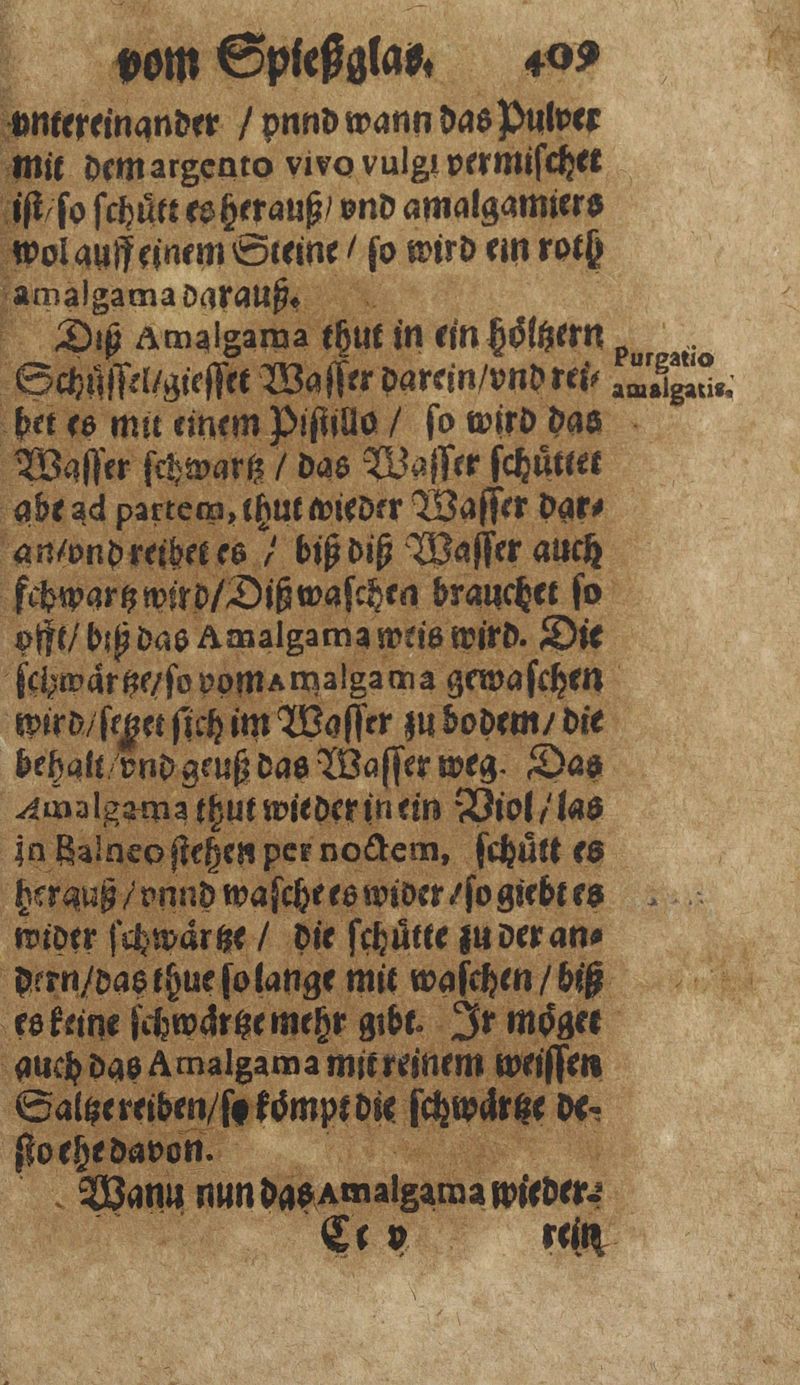 vom Spießglas. 409
vntereinander / vnnd wann das Pulver
mit dem argento vivo vulgi vermischet
ist / so schütt es herauß / vnd amalgamiers
wol auff einem Steine / so wird ein roth
amalgama darauß.
Diß Amalgama thut in ein höltzern
Schüssel / giesset Wasser darein / vnd rei-
Purgatio
amalgatis.
bet es mit einem Pistillo / so wird das
Wasser schwartz / das Wasser schüttet
abe ad partem, thut wieder Wasser dar-
an / vnd reibet es / biß diß Wasser auch
schwartz wird / Diß waschen brauchet so
offt / biß das Amalgama weis wird. Die
schwärtze / so vom Amalgama gewaschen
wird / setzet sich im Wasser zu bodem / die
behalt / vnd geuß das Wasser weg. Das
Amalgama thut wieder in ein Viol / las
in Balneo stehen per noctem, schütt es
herauß / vnnd wasche es wider / so giebt es
wider schwärtze / die schütte zu der an-
dern / das thue so lange mit waschen / biß
es keine schwärtze mehr gibt. Ir möget
auch das Amalgama mit reinem weissen
Saltze reiben / so kömpt die schwärtze de-
sto ehe davon.
Wann nun das Amalgama wieder-
Cc v rein